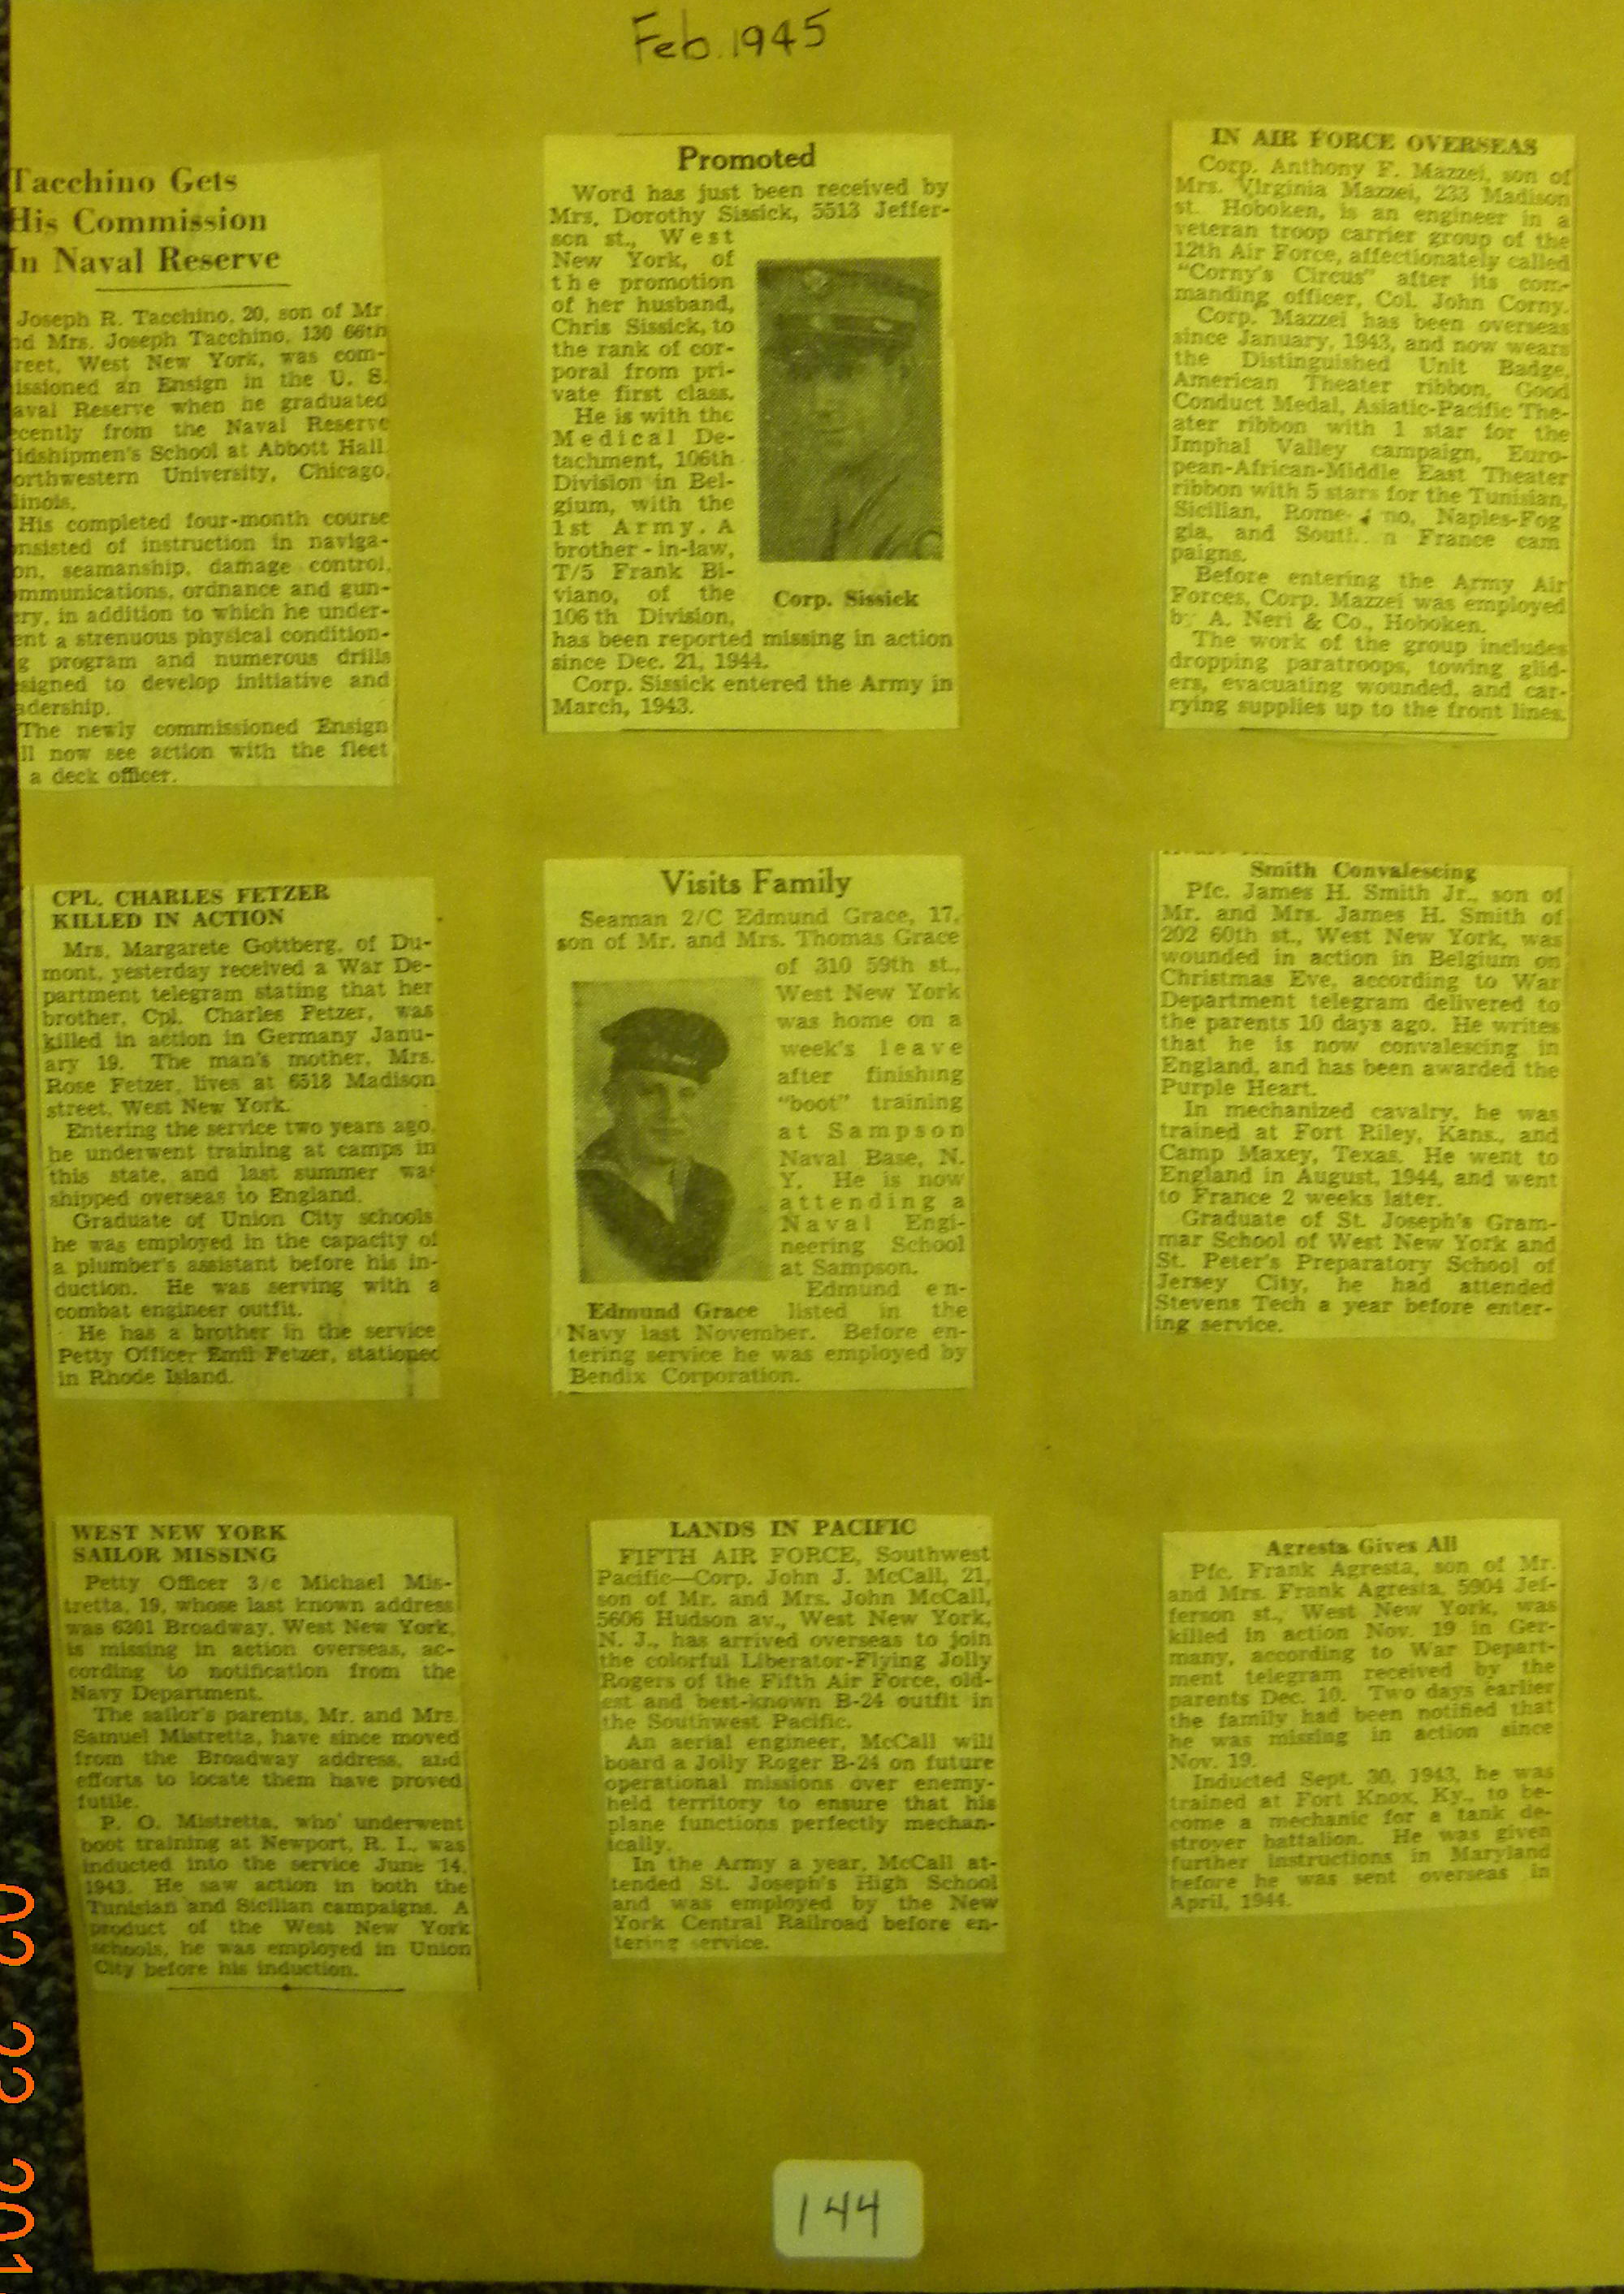 Feb. 1945
Tacchino Gets
His Commission
In Naval Reserve
Joseph R. Tacchino, 20, son of Mr.
nd Mrs. Joseph Tacchino, 130 66th
reet, West New York, was com-
issioned an Ensign in the U. S.
aval Reserve when he graduated
ecently from the Naval Reserve
idshipmen's School at Abbott Hall,
orthwestern University, Chicago,
linois.
His completed four-month course
nsisted of instruction in naviga-
on, seamanship, damage control,
mmunications, ordnance and gun-
ery, in addition to which he under-
ent a strenuous physical condition-
g program and numerous drills
signed to develop initiative and
adership.
The newly commissioned Ensign
ll now see action with the fleet
a deck officer.
Promoted
Word has just been received by
Mrs. Dorothy Sissick, 5513 Jeffer-
son st., West
New York, of
the promotion
of her husband,
Chris Sissick, to
the rank of cor-
poral from pri-
vate first class.
He is with the
Medical De-
tachment, 106th
Division in Bel-
gium, with the
1st Army. A
brother-in-law,
T/5 Frank Bi-
viano, of the
106th Division,
Corp. Sissick
has been reported missing in action
since Dec. 21, 1944.
Corp. Sissick entered the Army in
March, 1943.
IN AIR FORCE OVERSEAS
Corp. Anthony F. Mazzei, son of
Mrs. Virginia Mazzei, 233 Madison
st. Hoboken, is an engineer in a
veteran troop carrier group of the
12th Air Force, affectionately called
"Corny's Circus" after its com-
manding officer, Col. John Corny.
Corp. Mazzei has been overseas
since January, 1943, and now wears
the Distinguished Unit Badge,
American Theater ribbon, Good
Conduct Medal, Asiatic-Pacific The-
ater ribbon with 1 star for the
Imphal Valley campaign, Euro-
pean-African-Middle East Theater
ribbon with 5 stars for the Tunisian,
Sicilian, Rome- no, Naples-Fog
gia, and South n France cam
paigns.
Before entering the Army Air
Forces, Corp. Mazzei was employed
by A. Neri & Co., Hoboken.
The work of the group includes
dropping paratroops, towing glid-
ers, evacuating wounded, and car-
rying supplies up to the front lines.
CPL. CHARLES FETZER
KILLED IN ACTION
Mrs. Margarete Gottberg, of Du-
mont, yesterday received a War De-
partment telegram stating that her
brother, Cpl. Charles Fetzer, was
killed in action in Germany Janu-
ary 19. The man's mother, Mrs.
Rose Fetzer, lives at 6518 Madison
street, West New York.
Entering the service two years ago,
he underwent training at camps in
this state, and last summer was
shipped overseas to England.
Graduate of Union City schools
he was employed in the capacity of
a plumber's assistant before his in-
duction. He was serving with a
combat engineer outfit.
He has a brother in the service
Petty Officer Emil Fetzer, stationed
in Rhode Island.
Visits Family
Seaman 2/C Edmund Grace, 17,
son of Mr. and Mrs. Thomas Grace
of 310 59th st.,
West New York
was home on a
week's leave
after finishing
"boot" training
at Sampson
Naval Base, N.
Y. He is now
attending a
Naval Engi-
neering School
at Sampson.
Edmund en-
Edmund Grace listed in the
Navy last November. Before en-
tering service he was employed by
Bendix Corporation.
Smith Convalescing
Pfc. James H. Smith Jr., son of
Mr. and Mrs. James H. Smith of
202 60th st., West New York, was
wounded in action in Belgium on
Christmas Eve, according to War
Department telegram delivered to
the parents 10 days ago. He writes
that he is now convalescing in
England, and has been awarded the
Purple Heart.
In mechanized cavalry, he was
trained at Fort Riley, Kans., and
Camp Maxey, Texas. He went to
England in August, 1944, and went
to France 2 weeks later.
Graduate of St. Joseph's Gram-
mar School of West New York and
St. Peter's Preparatory School of
Jersey City, he had attended
Stevens Tech a year before enter-
ing service.
WEST NEW YORK
SAILOR MISSING
Petty Officer 3/c Michael Mis-
tretta, 19, whose last known address
was 6301 Broadway, West New York,
is missing in action overseas, ac-
cording to notification from the
Navy Department.
The sailor's parents, Mr. and Mrs.
Samuel Mistretta, have since moved
from the Broadway address, and
efforts to locate them have proved
futile.
P. O. Mistretta, who underwent
boot training at Newport, R. I., was
inducted into the service June 14,
1943. He saw action in both the
Tunisian and Sicilian campaigns. A
product of the West New York
schools, he was employed in Union
City before his induction.
LANDS IN PACIFIC
FIFTH AIR FORCE, Southwest
Pacific—Corp. John J. McCall, 21,
son of Mr. and Mrs. John McCall,
5606 Hudson av., West New York,
N. J., has arrived overseas to join
the colorful Liberator-Flying Jolly
Rogers of the Fifth Air Force, old-
est and best-known B-24 outfit in
the Southwest Pacific.
An aerial engineer, McCall will
board a Jolly Roger B-24 on future
operational missions over enemy-
held territory to ensure that his
plane functions perfectly mechan-
ically.
In the Army a year, McCall at-
tended St. Joseph's High School
and was employed by the New
York Central Railroad before en-
tering service.
Agresta Gives All
Pfc. Frank Agresta, son of Mr.
and Mrs. Frank Agresta, 5904 Jef-
ferson st., West New York, was
killed in action Nov. 19 in Ger-
many, according to War Depart-
ment telegram received by the
parents Dec. 10. Two days earlier
the family had been notified that
he was missing in action since
Nov. 19.
Inducted Sept. 30, 1943, he was
trained at Fort Knox, Ky., to be-
come a mechanic for a tank de-
stroyer battalion. He was given
further instructions in Maryland
before he was sent overseas in
April, 1944.
144